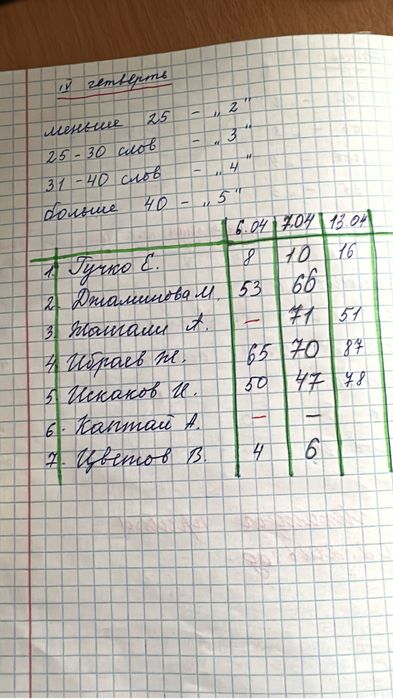 IV четверть
меньше 25 - „2"
25-30 слов - „3"
31-40 слов - „4"
больше 40 - „5"
6.04 7.04 13.04
1. Гучко Е. 8 10 16
2. Джаминова М. 53 66
3. Жагпали А. - 71 51
4. Ибраев Ж. 65 70 87
5. Искаков И. 50 47 78
6. Каптай А. - -
7. Цветов В. 4 6